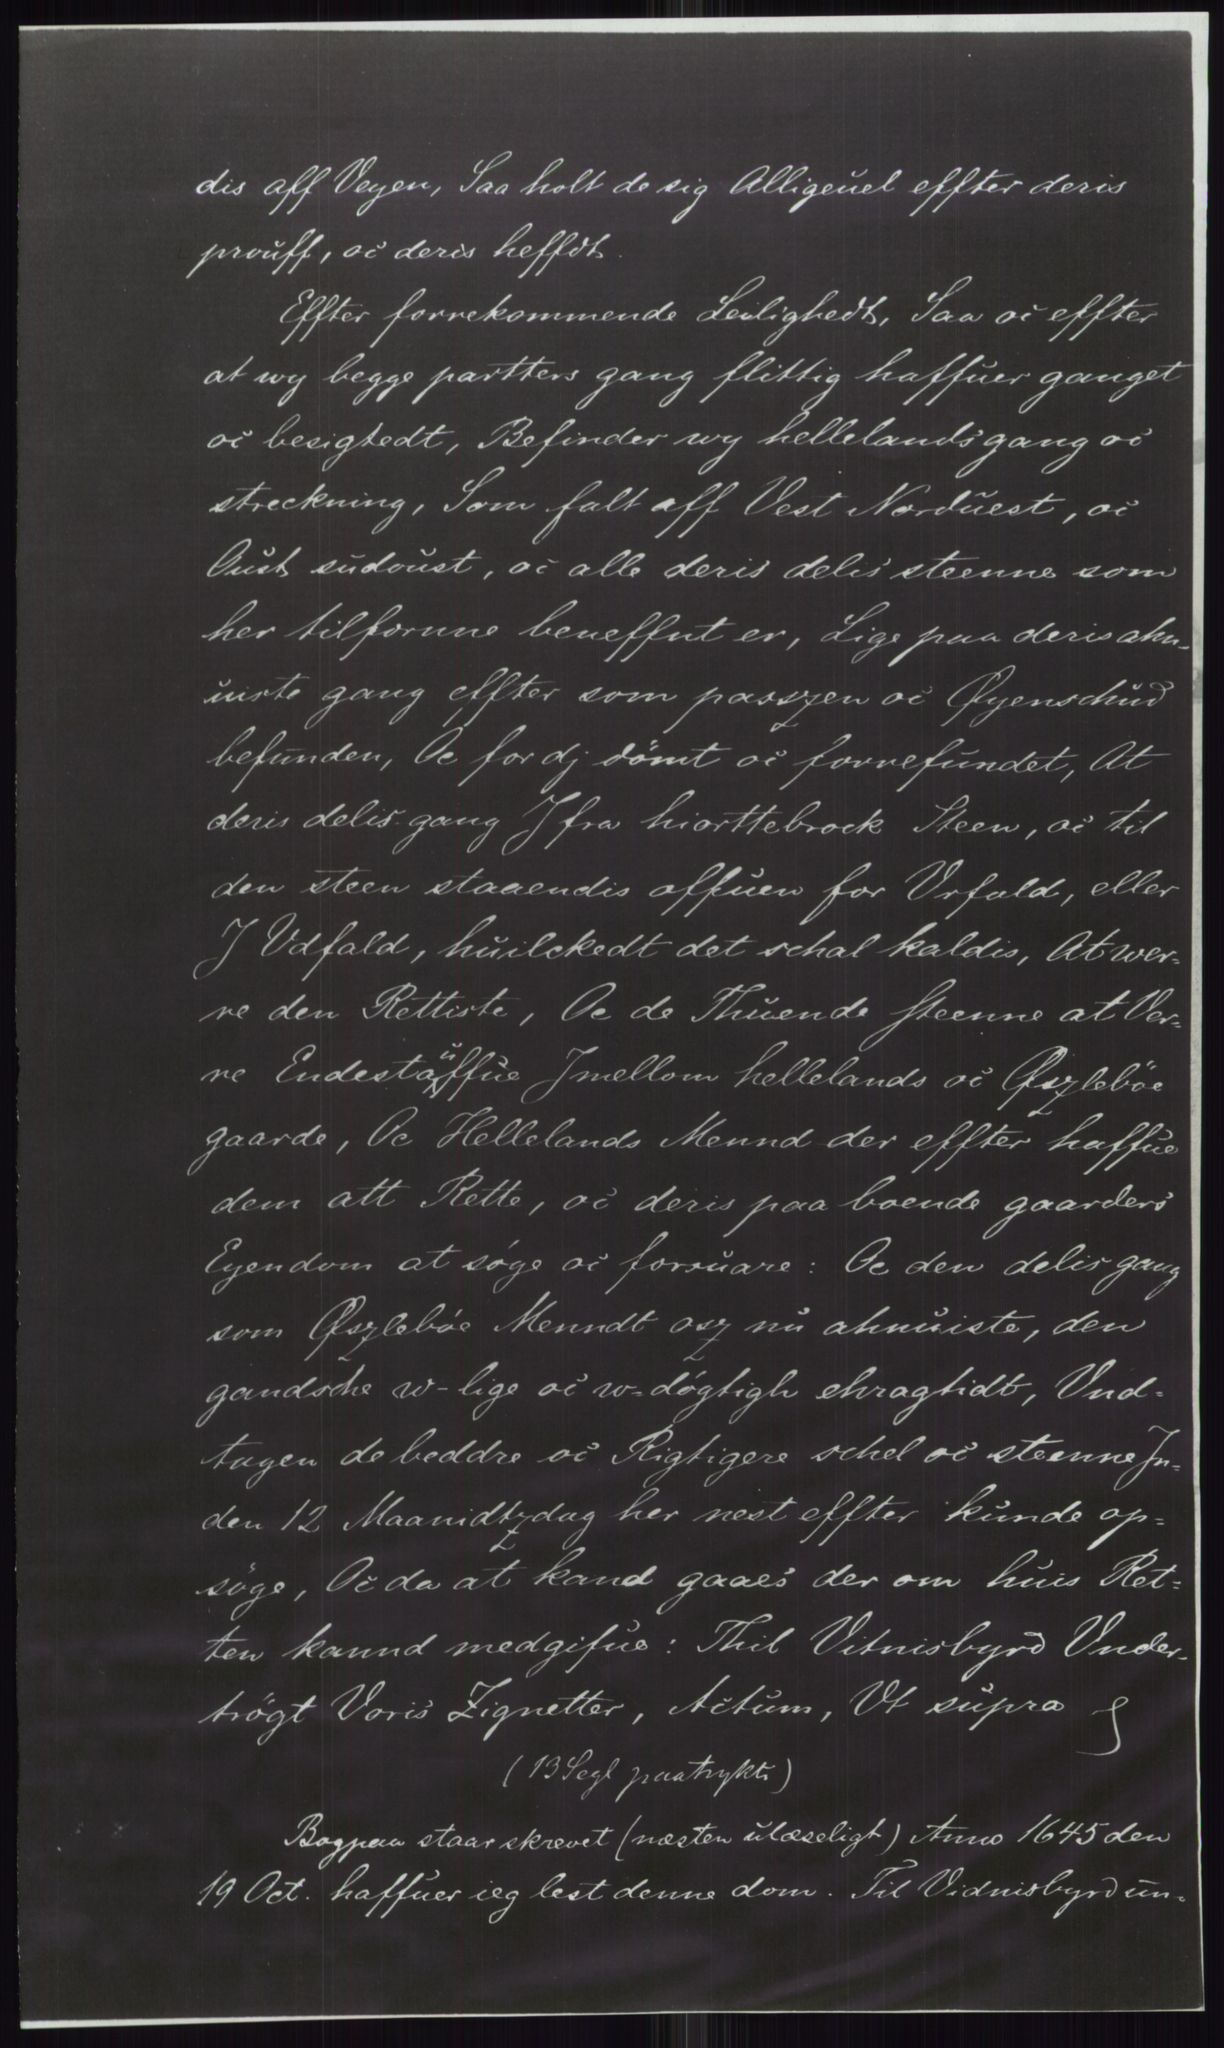 dis aff Veyen, Saa holt de sig Alligeuel effter deris
prouff, oc deris heffdt.
Effter forrekommende Leilighedt, Saa oc effter
at wy begge partters gang flittig haffuer ganget
oc besigtedt, Befinder wy hellelands gang oc
streckning, Som falt aff Vest Norduest, oc
Oust sudoust, oc alle deris delis steenne som
her tilfornne beneffnt er, Lige paa deris ahn-
uiste gang effter som passzen oc Øyenschud
befunden, Oc for dj dömt oc forrefundet, At
deris delis gang J fra hiorttebrock Steen, oc til
den steen staaendis offuen for Vrfald, eller
J Vdfald, huilckedt det schal kaldis, At wer=
re den Rettiste, Oc de Thuende steenne at Ver=
re Endestauffue Jmellom hellelands oc Øszleböe
gaarde, Oc Hellelands Mennd der effter haffue
dem att Rette, oc deris paa boende gaarders
Eyendom at søge oc forsuare: Oc den delis gang
som Øszlebøe Menndt osz nu ahnuiste, den
gandsche w-lige oc w=døgtigh ehragtidt, Vnd=
tagen de beddre oc Rigtigere schel oc steenne Jn=
den 12 Maanidtzdag her nest effter kunde op=
söge, Oc da at kand gaaes der om huis Ret=
ten kannd medgifue: Thil Vitnisbyrd Vnder-
trögt Voris Zignetter, Actum, Vt supra
(13 Segl paatrykt)
Bagpaa staar skrevet (næsten ulæseligt) Anno 1645 den
19 Oct. haffuer ieg lest denne dom. Til Vidnisbyrd un-